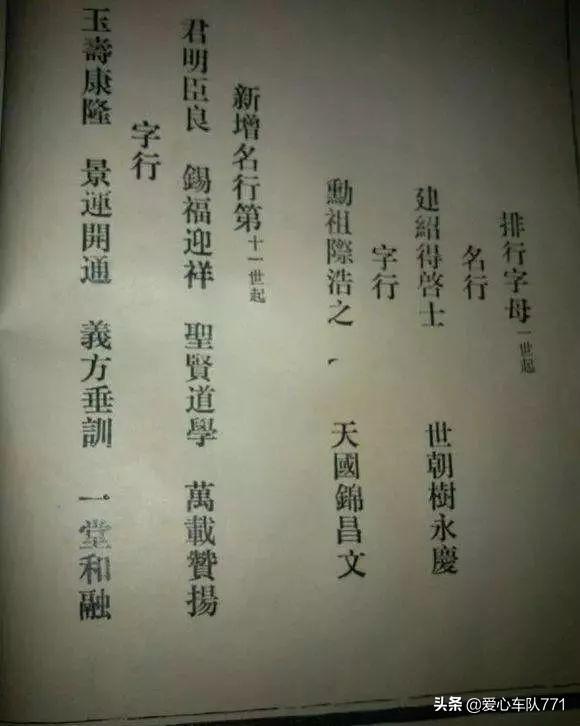 排行字母一世起
名行
建紹得啓士 世朝樹永慶
字行
勳祖際浩之 天國錦昌文
新增名行第十一世起
君明臣良 錫福迎祥 聖賢道學 萬載贊揚
字行
玉壽康隆 景運開通 義方垂訓 一堂和融
头条 @爱心车队771